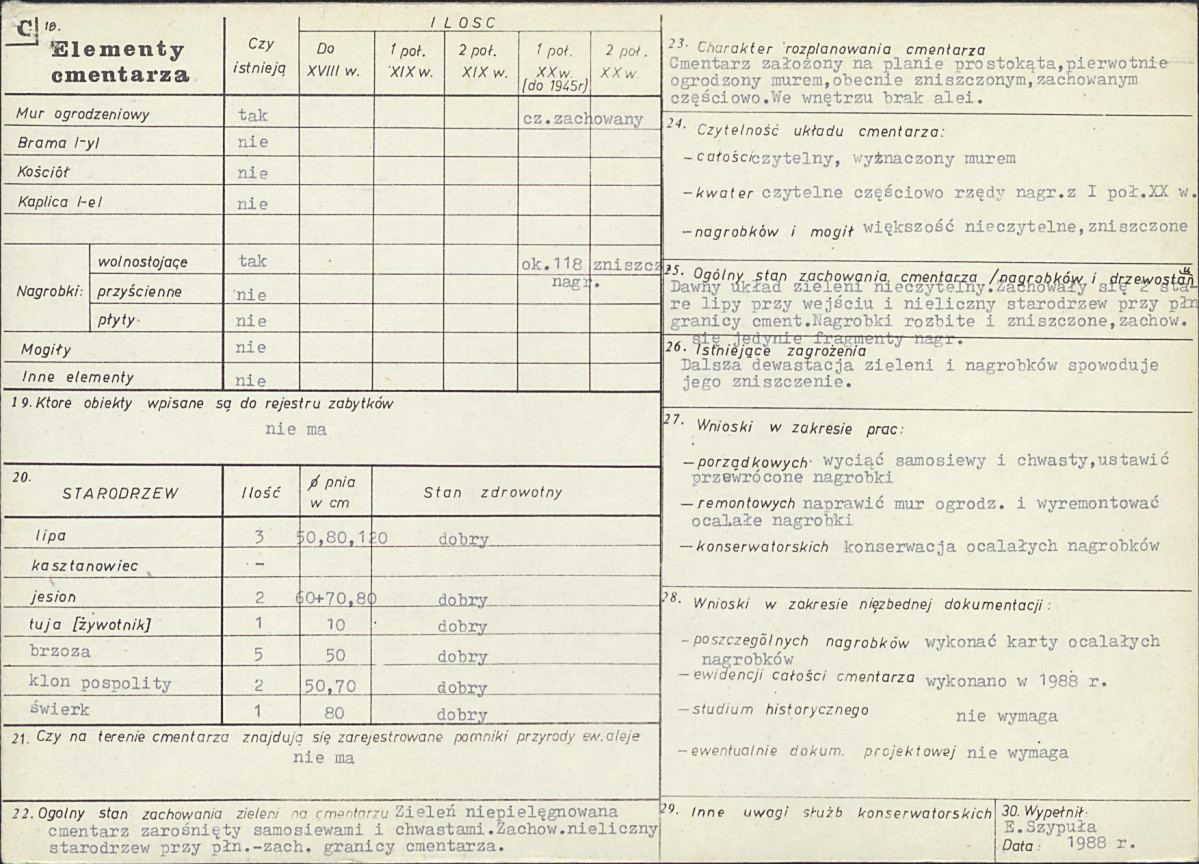 C 18.
Elementy
cmentarza
Czy
istnieją
ILOSC
Do
XVIII w.
1 poł.
XIX w.
2 poł.
XIX w.
1 poł.
XX w.
(do 1945r)
2 poł.
XX w.
Mur ogrodzeniowy tak cz.zachowany
Brama /-y/ nie
Kościół nie
Kaplica /-e/ nie
Nagrobki:
wolnostojące tak ok.118 zniszcz
nagr.
przyścienne nie
płyty nie
Mogiły nie
Inne elementy nie
19. Ktore obiekty wpisane są do rejestru zabytków
nie ma
20.
STARODRZEW Ilość ϕ pnia
w cm Stan zdrowotny
lipa 3 50,80,120 dobry
kasztanowiec -
jesion 2 60+70,80 dobry
tuja [żywotnik] 1 10 dobry
brzoza 5 50 dobry
klon pospolity 2 50,70 dobry
świerk 1 80 dobry
21. Czy na terenie cmentarza znajdują się zarejestrowane pomniki przyrody ew. aleje
nie ma
22. Ogolny stan zachowania zieleni na cmentarzu Zieleń niepielęgnowana
cmentarz zarośnięty samosiewami i chwastami.Zachow.nieliczny
starodrzew przy płn.-zach. granicy cmentarza.
23. Charakter rozplanowania cmentarza
Cmentarz założony na planie prostokąta,pierwotnie
ogrodzony murem,obecnie zniszczonym,zachowanym
częściowo.We wnętrzu brak alei.
24. Czytelność układu cmentarza:
- całości czytelny, wyznaczony murem
- kwater czytelne częściowo rzędy nagr.z I poł.XX w.
- nagrobków i mogił większość nieczytelne,zniszczone
25. Ogólny stan zachowania cmentarza /nagrobków i drzewostanu
Dawny układ zieleni nieczytelny.Zachowały się 2 sta-
re lipy przy wejściu i nieliczny starodrzew przy płn
granicy cment.Nagrobki rozbite i zniszczone,zachow.
się jedynie fragmenty nagr.
26. Istniejące zagrożenia
Dalsza dewastacja zieleni i nagrobków spowoduje
jego zniszczenie.
27. Wnioski w zakresie prac:
- porządkowych wyciąć samosiewy i chwasty,ustawić
przewrócone nagrobki
- remontowych naprawić mur ogrodz. i wyremontować
ocalałe nagrobki
- konserwatorskich konserwacja ocalałych nagrobków
28. Wnioski w zakresie nięzbednej dokumentacji:
- poszczególnych nagrobków wykonać karty ocalałych
nagrobków
- ewidencji całości cmentarza wykonano w 1988 r.
- studium historycznego nie wymaga
- ewentualnie dokum. projektowej nie wymaga
29. Inne uwagi służb konserwatorskich
30. Wypełnił:
E.Szypuła
Data: 1988 r.